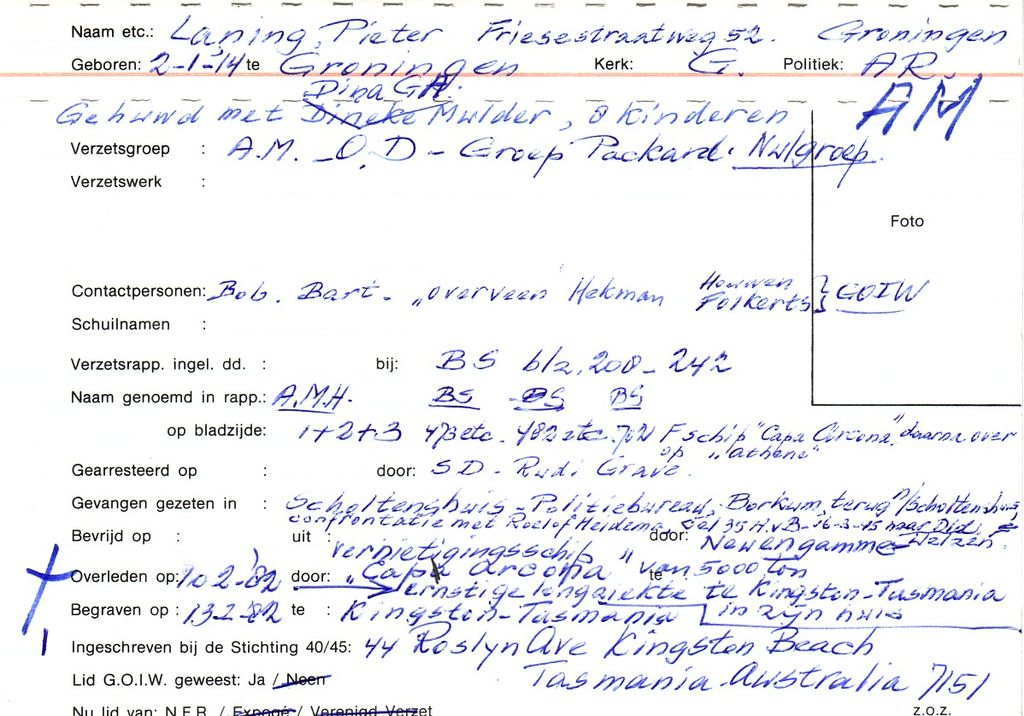 Naam etc.: Laning, Pieter Friesestraatweg 52. Groningen
Geboren: 2-1-'14 te Groningen Kerk: G. Politiek: AR.
Dina GH. AM
Gehuwd met Dineke Mulder, 8 kinderen
Verzetsgroep : A.M. - O.D - Groep Packard. Nw/groep.
Verzetswerk :
Foto
Contactpersonen: Bob. Bart. „overveen Hekman Houwen Folkerts } GOIW
Schuilnamen :
Verzetsrapp. ingel. dd. : bij: BS blz. 200-242
Naam genoemd in rapp.: A.M.H. BS BS BS
op bladzijde: 1+2+3 473 etc. 482 etc. 702 F schip "Capa Arcona" daarna over
op „athene"
Gearresteerd op : door: SD - Rudi Grave.
Gevangen gezeten in : Scholtenshuis - Politiebureau, Borkum, terug n/Scholtenshuis,
confrontatie met Roelof Heidema, Cel 35 H.v.B-16-3-45 naar
Bevrijd op : uit : vernietigingsschip „ door: Neuengamme
Overleden op: 10 2-'82 door: „Capa Arcona" te van 5000 ton
ernstige longziekte te Kingston-Tasmania
Begraven op : 13-2-'82 te : Kingston-Tasmania in zijn huis
Ingeschreven bij de Stichting 40/45: 44 Roslyn Ave Kingston Beach
Lid G.O.I.W. geweest: Ja / Neen Tasmania Australia 7151
Nu lid van: N.F.R. / Expogé / Verenigd Verzet z.o.z.